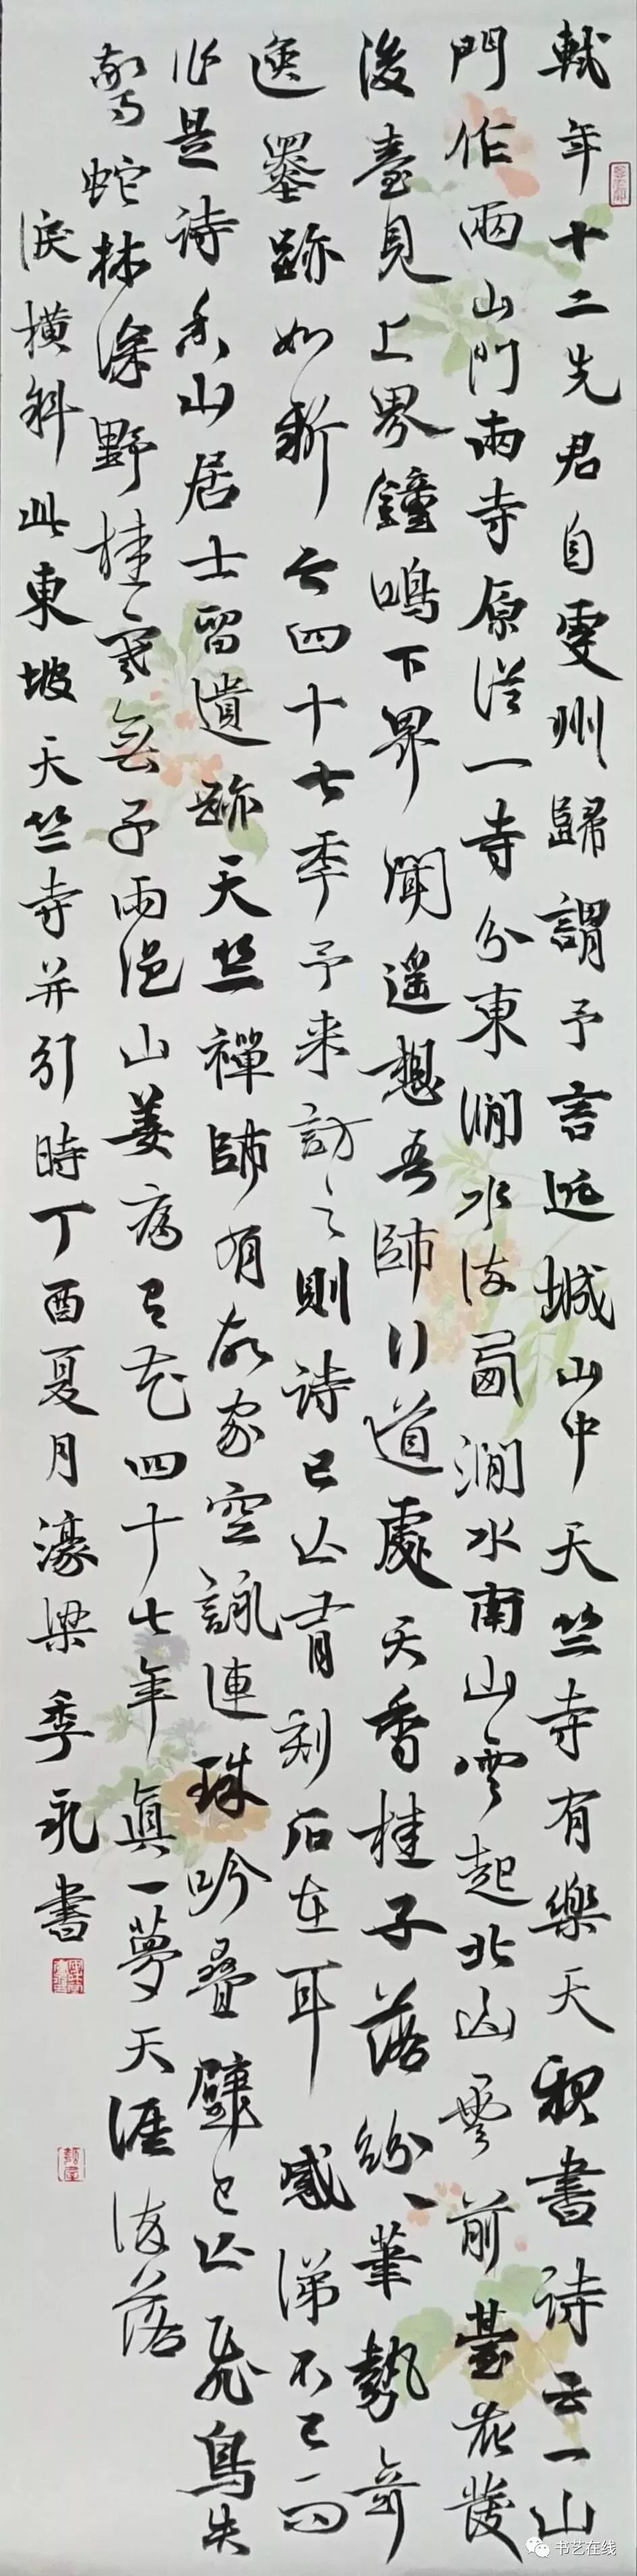 軾年十二先君自虔州歸謂予言近城山中天竺寺有樂天親書詩云一山
門作兩山門兩寺原從一寺分東澗水流西澗水南山雲起北山雲前臺花發
後臺見上界鐘鳴下界聞遙想吾師行道處天香桂子落紛々筆勢奇
逸墨跡如新今四十七秊予来訪之則詩已亡有刻石在耳感涕不已而
作是詩香山居士留遺跡天竺禪師有故家空詠連珠吟疊璧已亡飛鳥失
驚蛇林深野桂寒無子雨浥山姜病有花四十七年真一夢天涯流落
淚橫斜此東坡天竺寺并引時丁酉夏月濠梁季永書
书艺在线